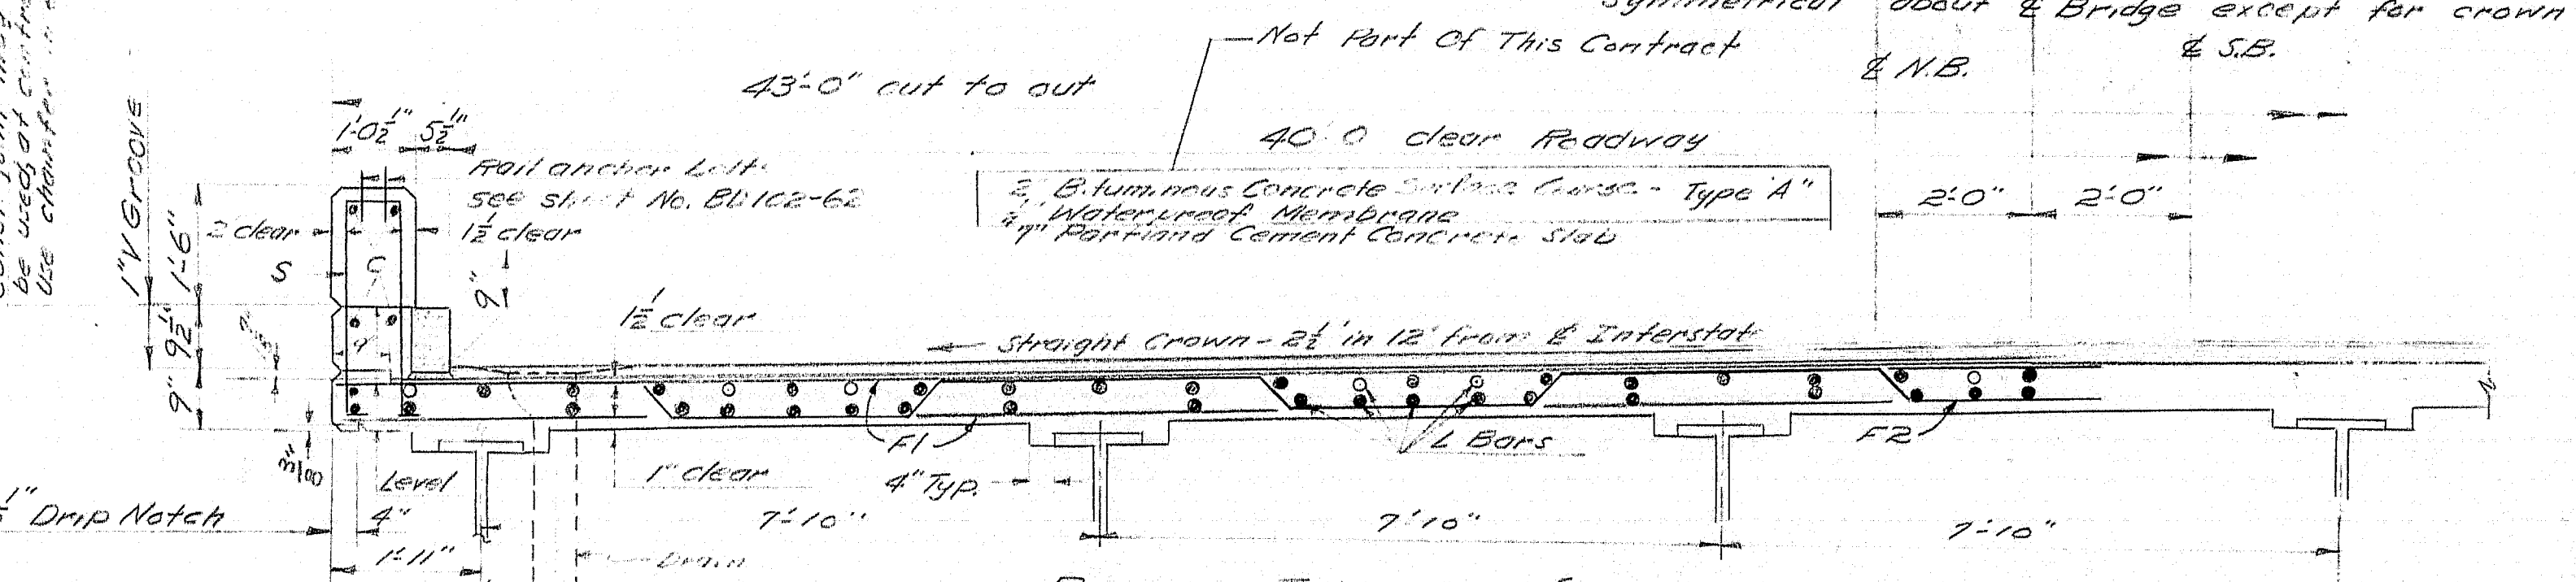 Symmetrical about ℄ Bridge except for crown
Not Part Of This Contract
℄ N.B.
℄ S.B.
43'-0" out to out
40'-0 clear Roadway
1'-0½" 5½"
Rail anchor bolts
see sheet No. BD102-62
2" Bituminous Concrete Surface Course - Type "A"
Waterproof Membrane
7" Portland Cement Concrete Slab
2'-0"
2'-0"
be used at
Use chamfer
1" V Groove
1'-6"
9½"
9"
2" clear
1½ clear
S
C
9"
1½ clear
Straight Crown - 2½" in 12' from ℄ Interstate
F1
L Bars
F2
3/8"
Level
4"
1" clear
4" Typ.
Drip Notch
7'-10"
7'-10"
7'-10"
1'-11"
Drain